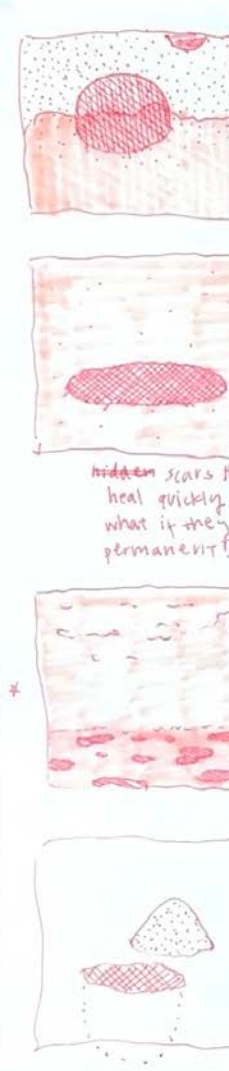 hidden scars
heal quickly
what if they
permanent?